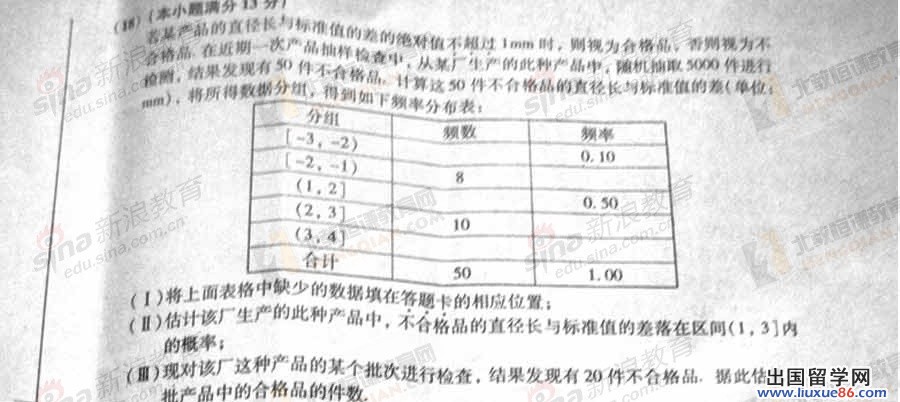 (18)(本小题满分13分)
若某产品的直径长与标准值的差的绝对值不超过1mm时，则视为合格品，否则视为不
合格品.在近期一次产品抽样检查中，从某厂生产的此种产品中，随机抽取5000件进行
检测，结果发现有50件不合格品.计算这50件不合格品的直径长与标准值的差(单位:
mm)，将所得数据分组，得到如下频率分布表:
分组 频数 频率
[-3, -2) 0.10
[-2, -1) 8
(1, 2] 0.50
(2, 3] 10
(3, 4]
合计 50 1.00
(Ⅰ)将上面表格中缺少的数据填在答题卡的相应位置;
(Ⅱ)估计该厂生产的此种产品中，不合格品的直径长与标准值的差落在区间(1, 3]内
的概率;
(Ⅲ)现对该厂这种产品的某个批次进行检查，结果发现有20件不合格品.据此估
批产品中的合格品的件数.
sina新浪教育
edu.sina.com.cn
出国留学网
www.liuxue86.com